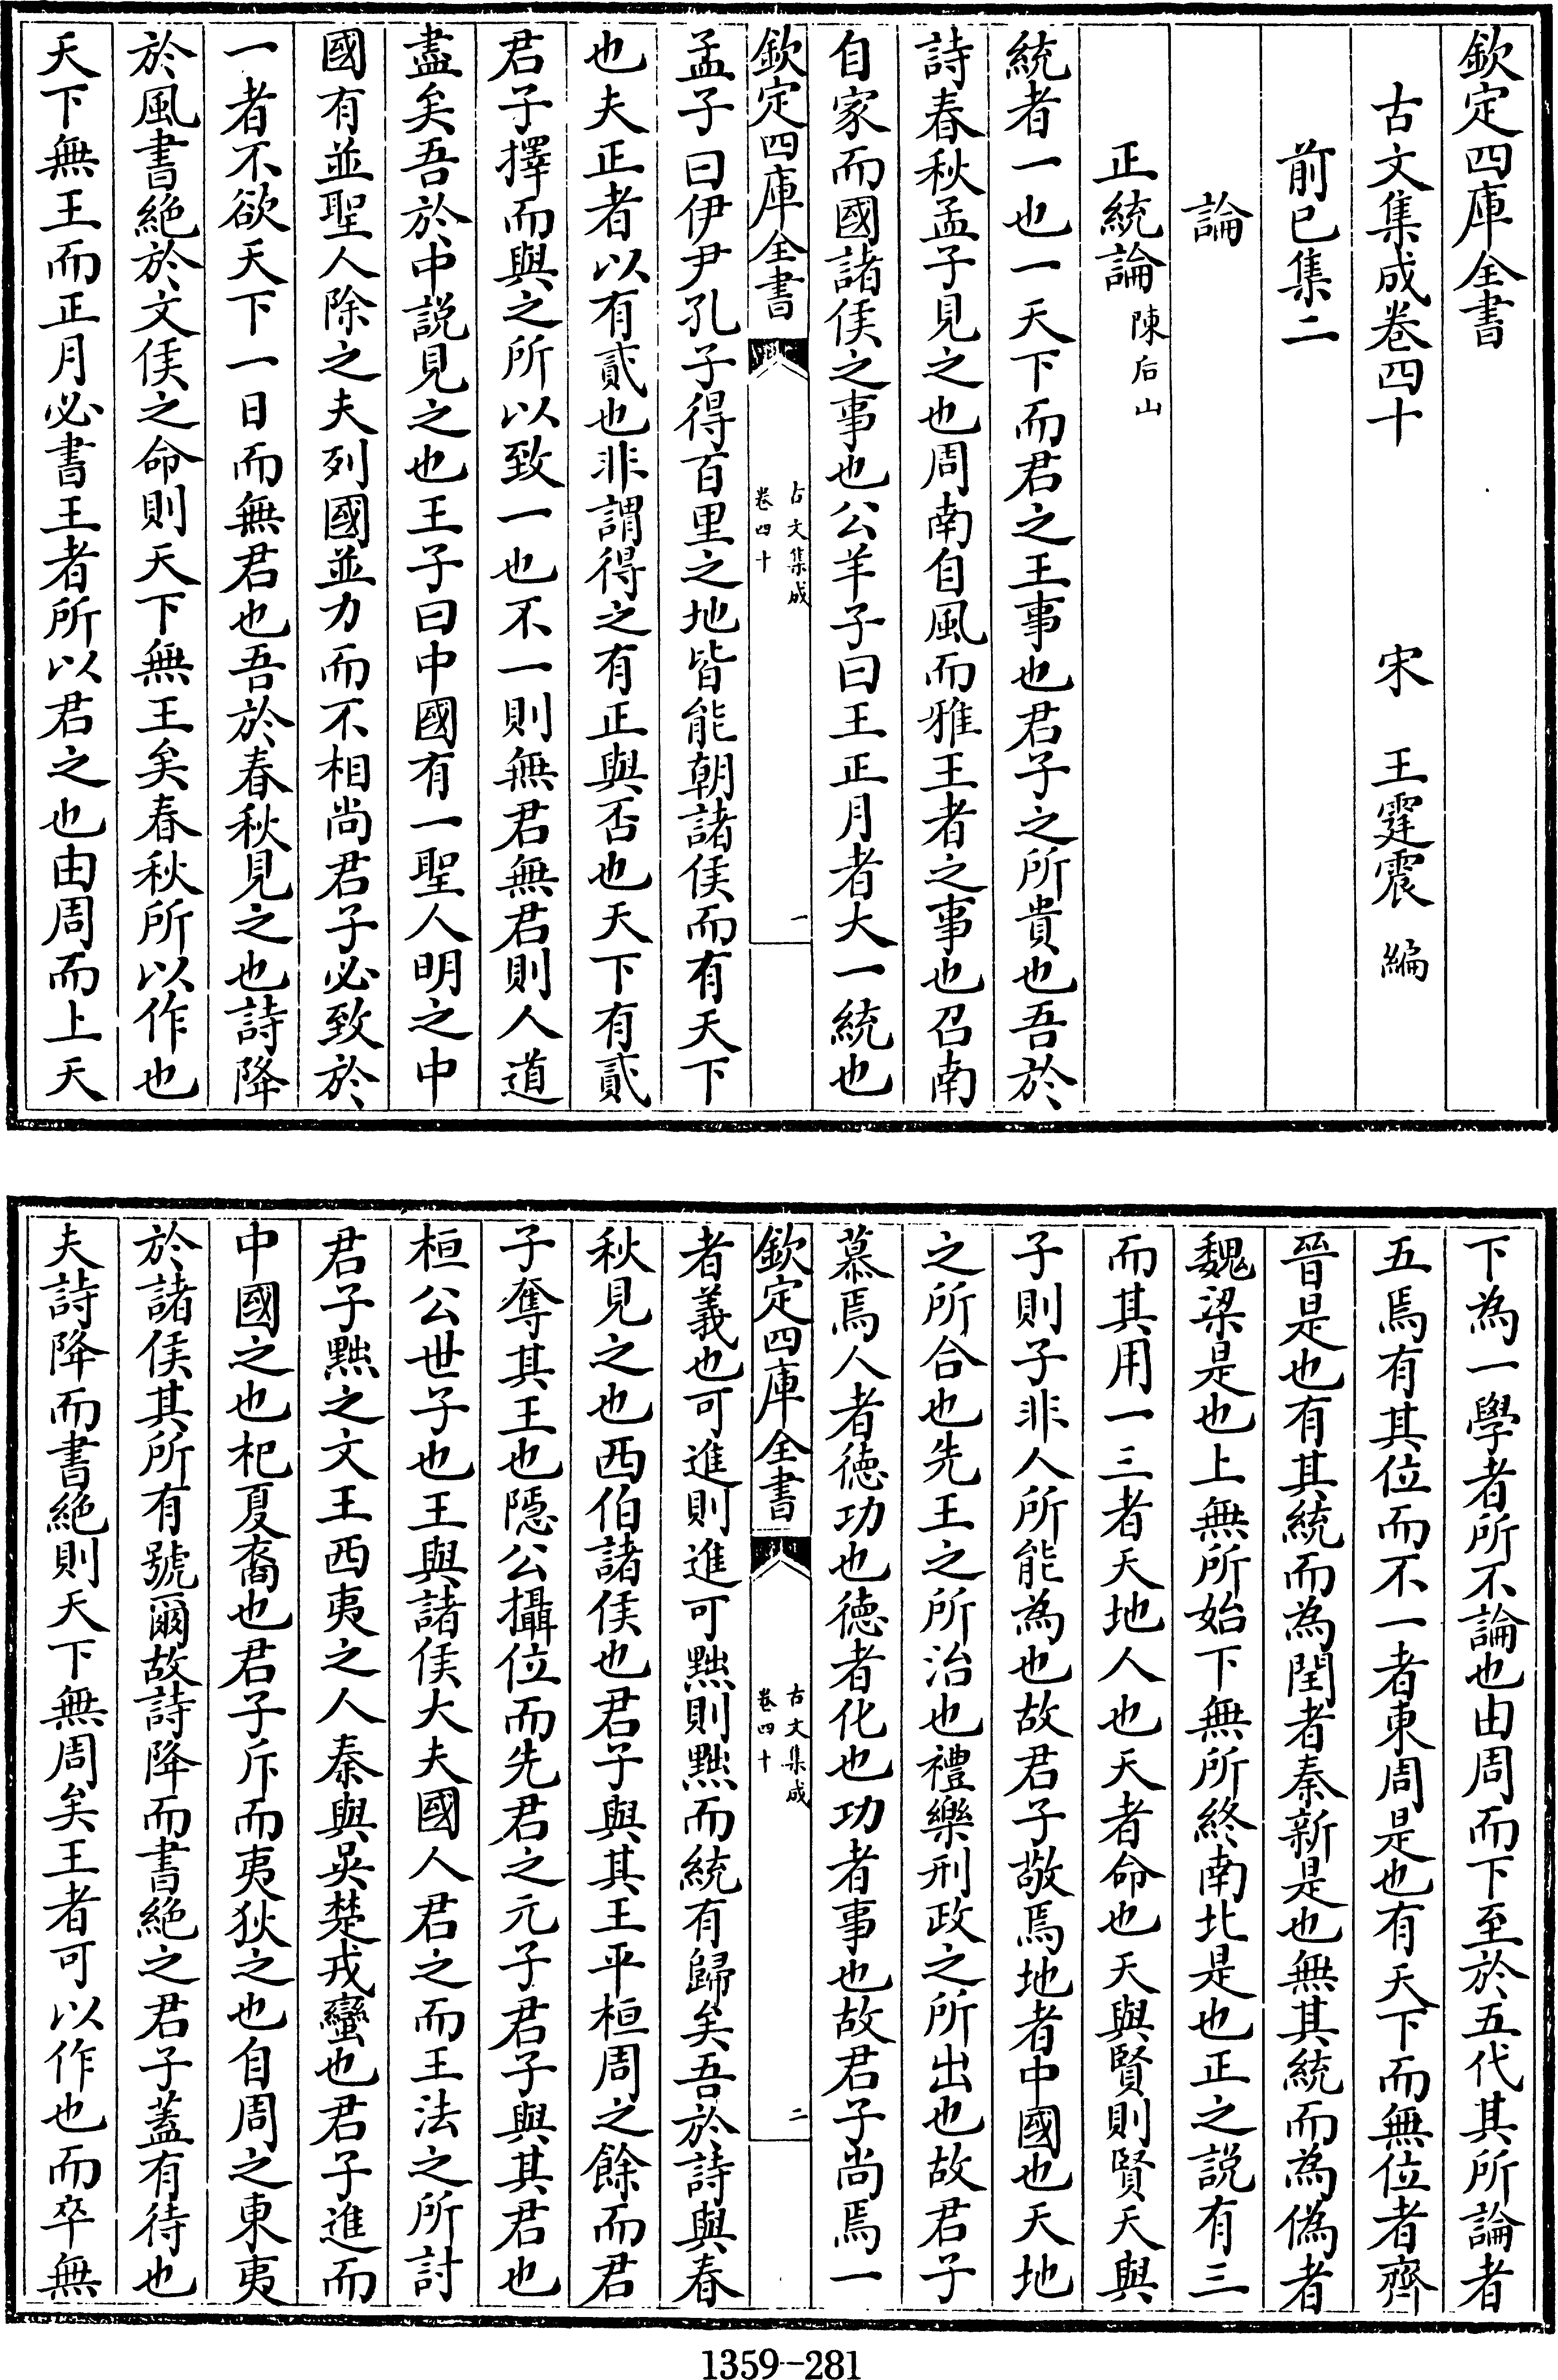 欽定四庫全書
古文集成卷四十　宋　王霆震　編
前已集二
論
正統論陳后山
統者一也一天下而君之王事也君子之所貴也吾於
詩春秋孟子見之也周南自風而雅王者之事也召南
自家而國諸侯之事也公羊子曰王正月者大一統也
欽定四庫全書
古文集成
卷四十
一
孟子曰伊尹孔子得百里之地皆能朝諸侯而有天下
也夫正者以有貳也非謂得之有正與否也天下有貳
君子擇而與之所以致一也不一則無君無君則人道
盡矣吾於中說見之也王子曰中國有一聖人明之中
國有並聖人除之夫列國並力而不相尚君子必致於
一者不欲天下一日而無君也吾於春秋見之也詩降
於風書絕於文侯之命則天下無王矣春秋所以作也
天下無王而正月必書王者所以君之也由周而上天
下為一學者所不論也由周而下至於五代其所論者
五焉有其位而不一者東周是也有天下而無位者齊
晉是也有其統而為閏者秦新是也無其統而為偽者
魏梁是也上無所始下無所終南北是也正之說有三
而其用一三者天地人也天者命也天與賢則賢天與
子則子非人所能為也故君子敬焉地者中國也天地
之所合也先王之所治也禮樂刑政之所出也故君子
慕焉人者德功也德者化也功者事也故君子尚焉一
欽定四庫全書
古文集成
卷四十
二
者義也可進則進可黜則黜而統有歸矣吾於詩與春
秋見之也西伯諸侯也君子與其王平桓周之餘而君
子奪其王也隱公攝位而先君之元子君子與其君也
桓公世子也王與諸侯大夫國人君之而王法之所討
君子黜之文王西夷之人秦與吳楚戎蠻也君子進而
中國之也杞夏裔也君子斥而夷狄之也自周之東夷
於諸侯其所有號爾故詩降而書絕之君子蓋有待也
夫詩降而書絕則天下無周矣王者可以作也而卒無
1359-281